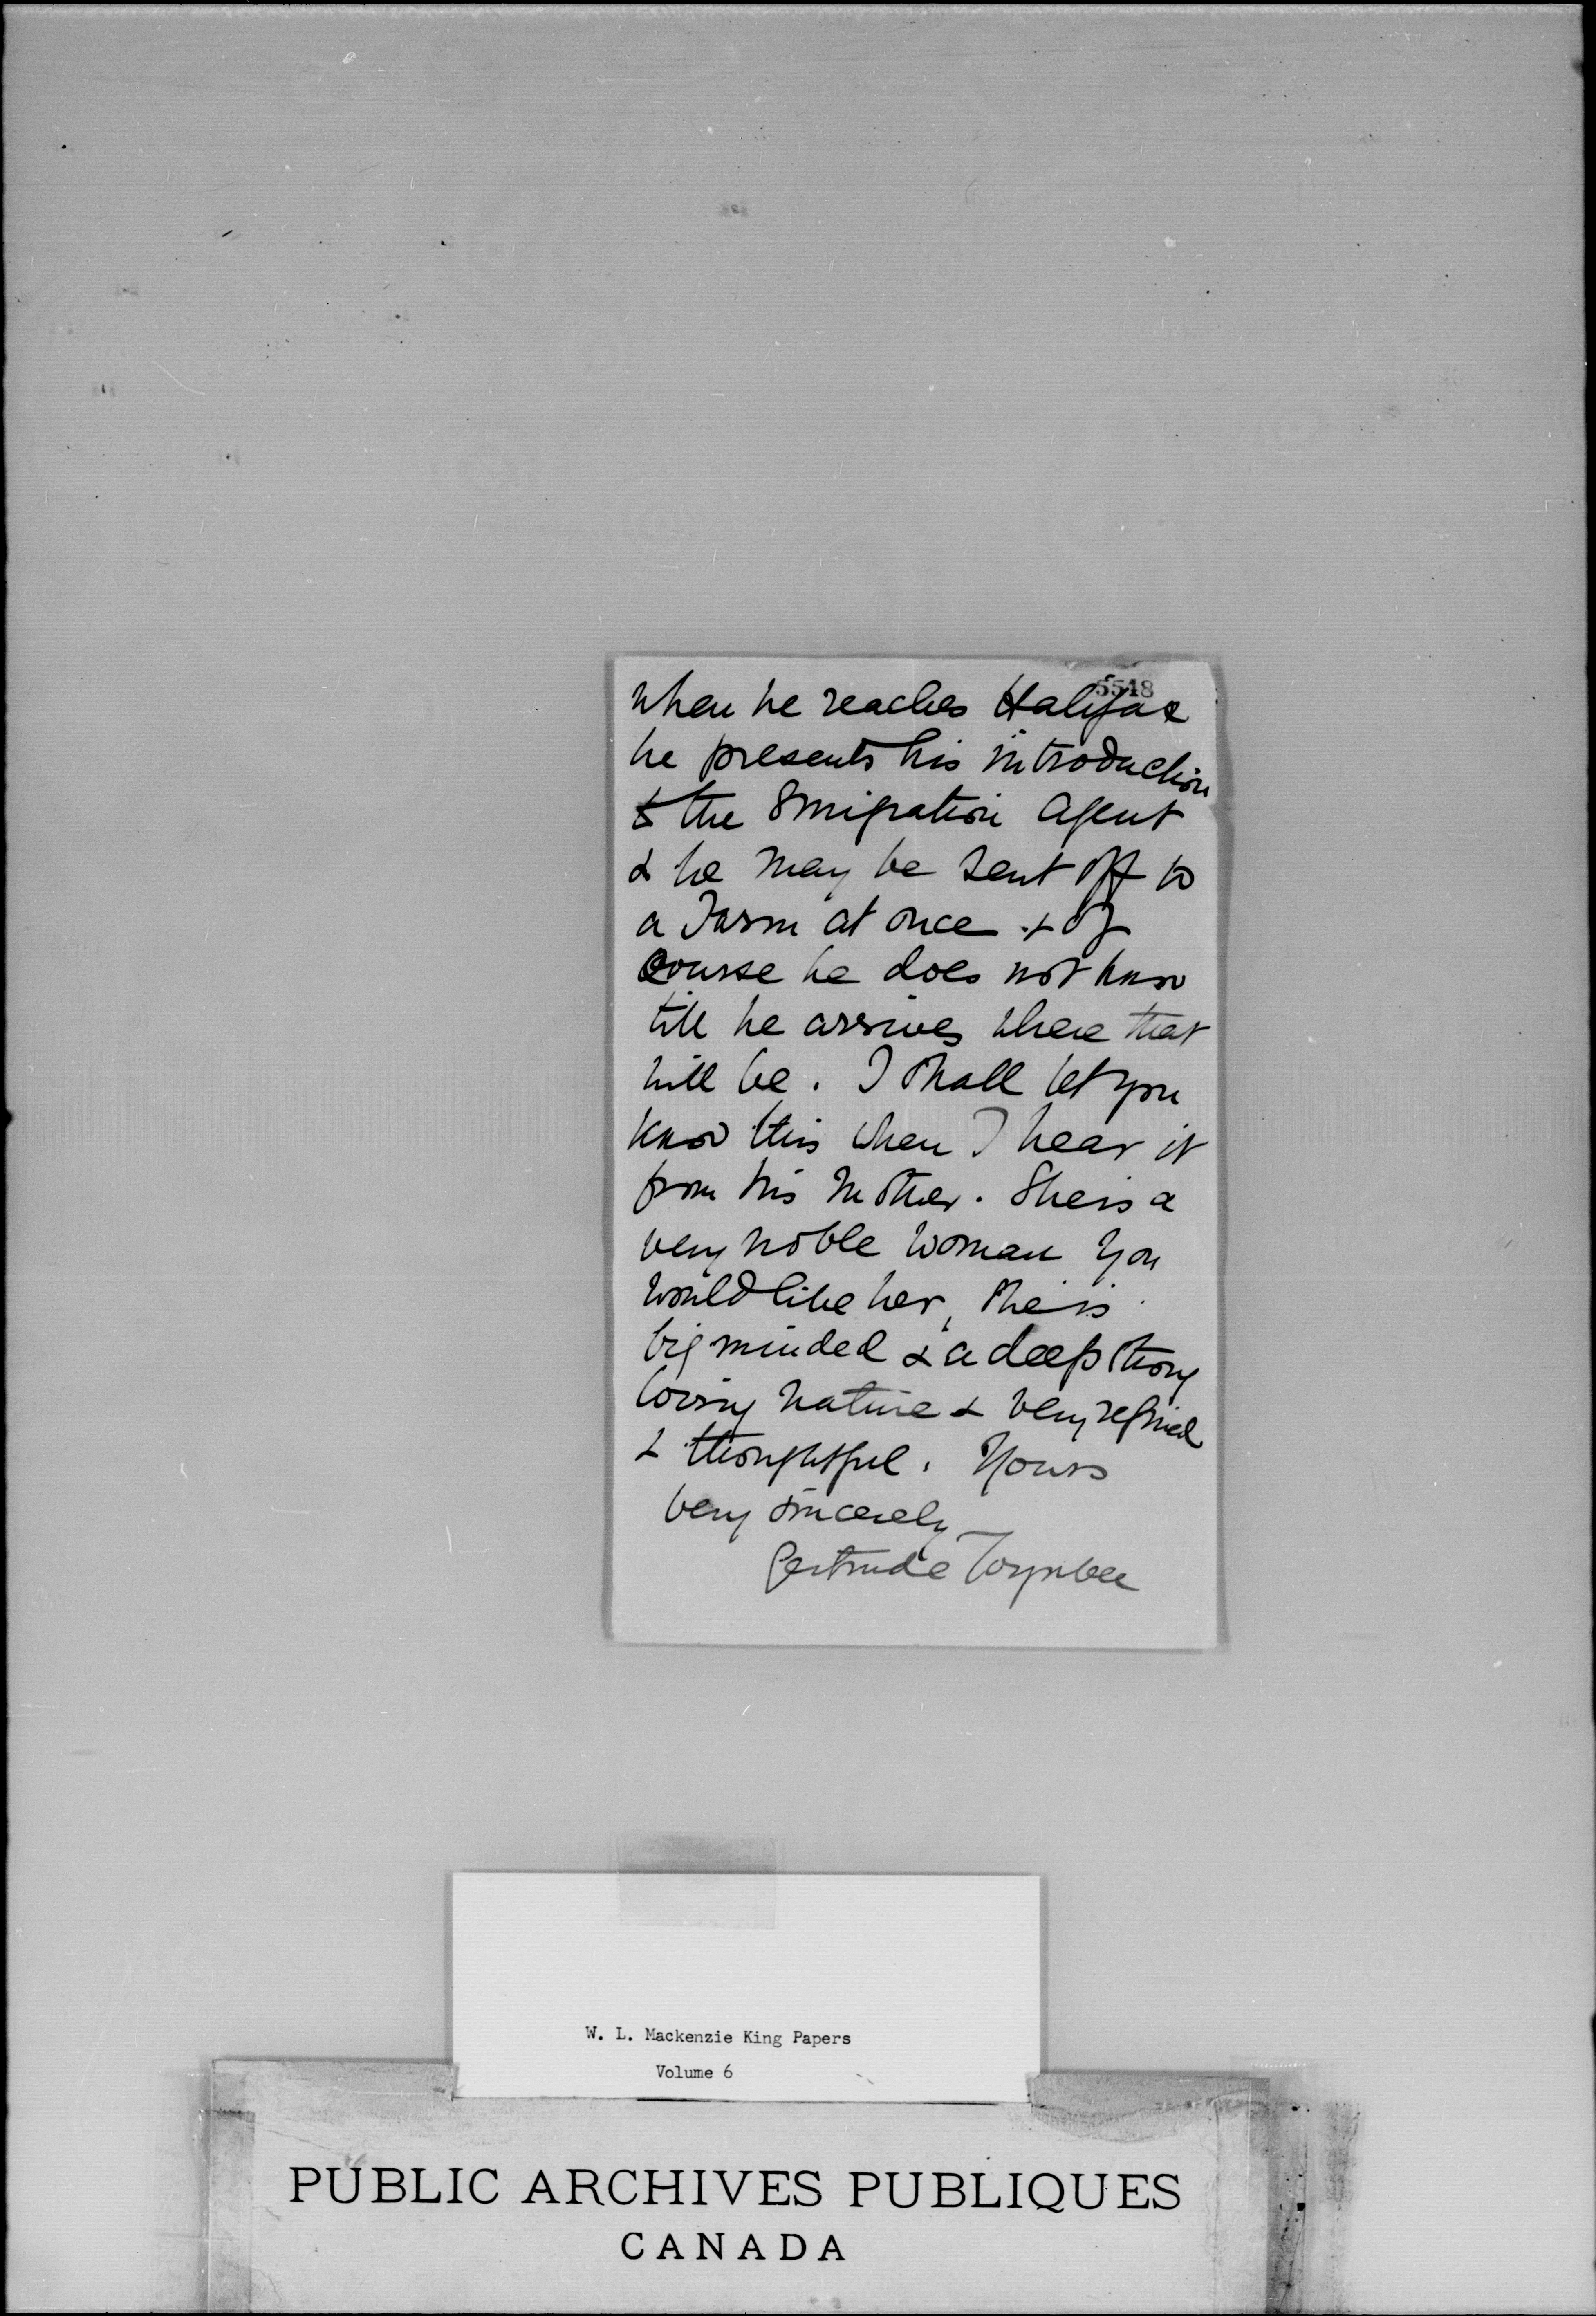 5548
when he reaches Halifax
he presents his introduction
to the Emigration Agent
& he may be sent off to
a Farm at once & of
course he does not know
till he arrives where that
will be. I shall let you
know this when I hear it
from his Mother. She is a
very noble woman you
would like her, she is
big minded & a deep strong
loving nature & very refined
& thoughtful. Yours
very sincerely
Gertrude Toynbee
W. L. Mackenzie King Papers
Volume 6
PUBLIC ARCHIVES PUBLIQUES
CANADA